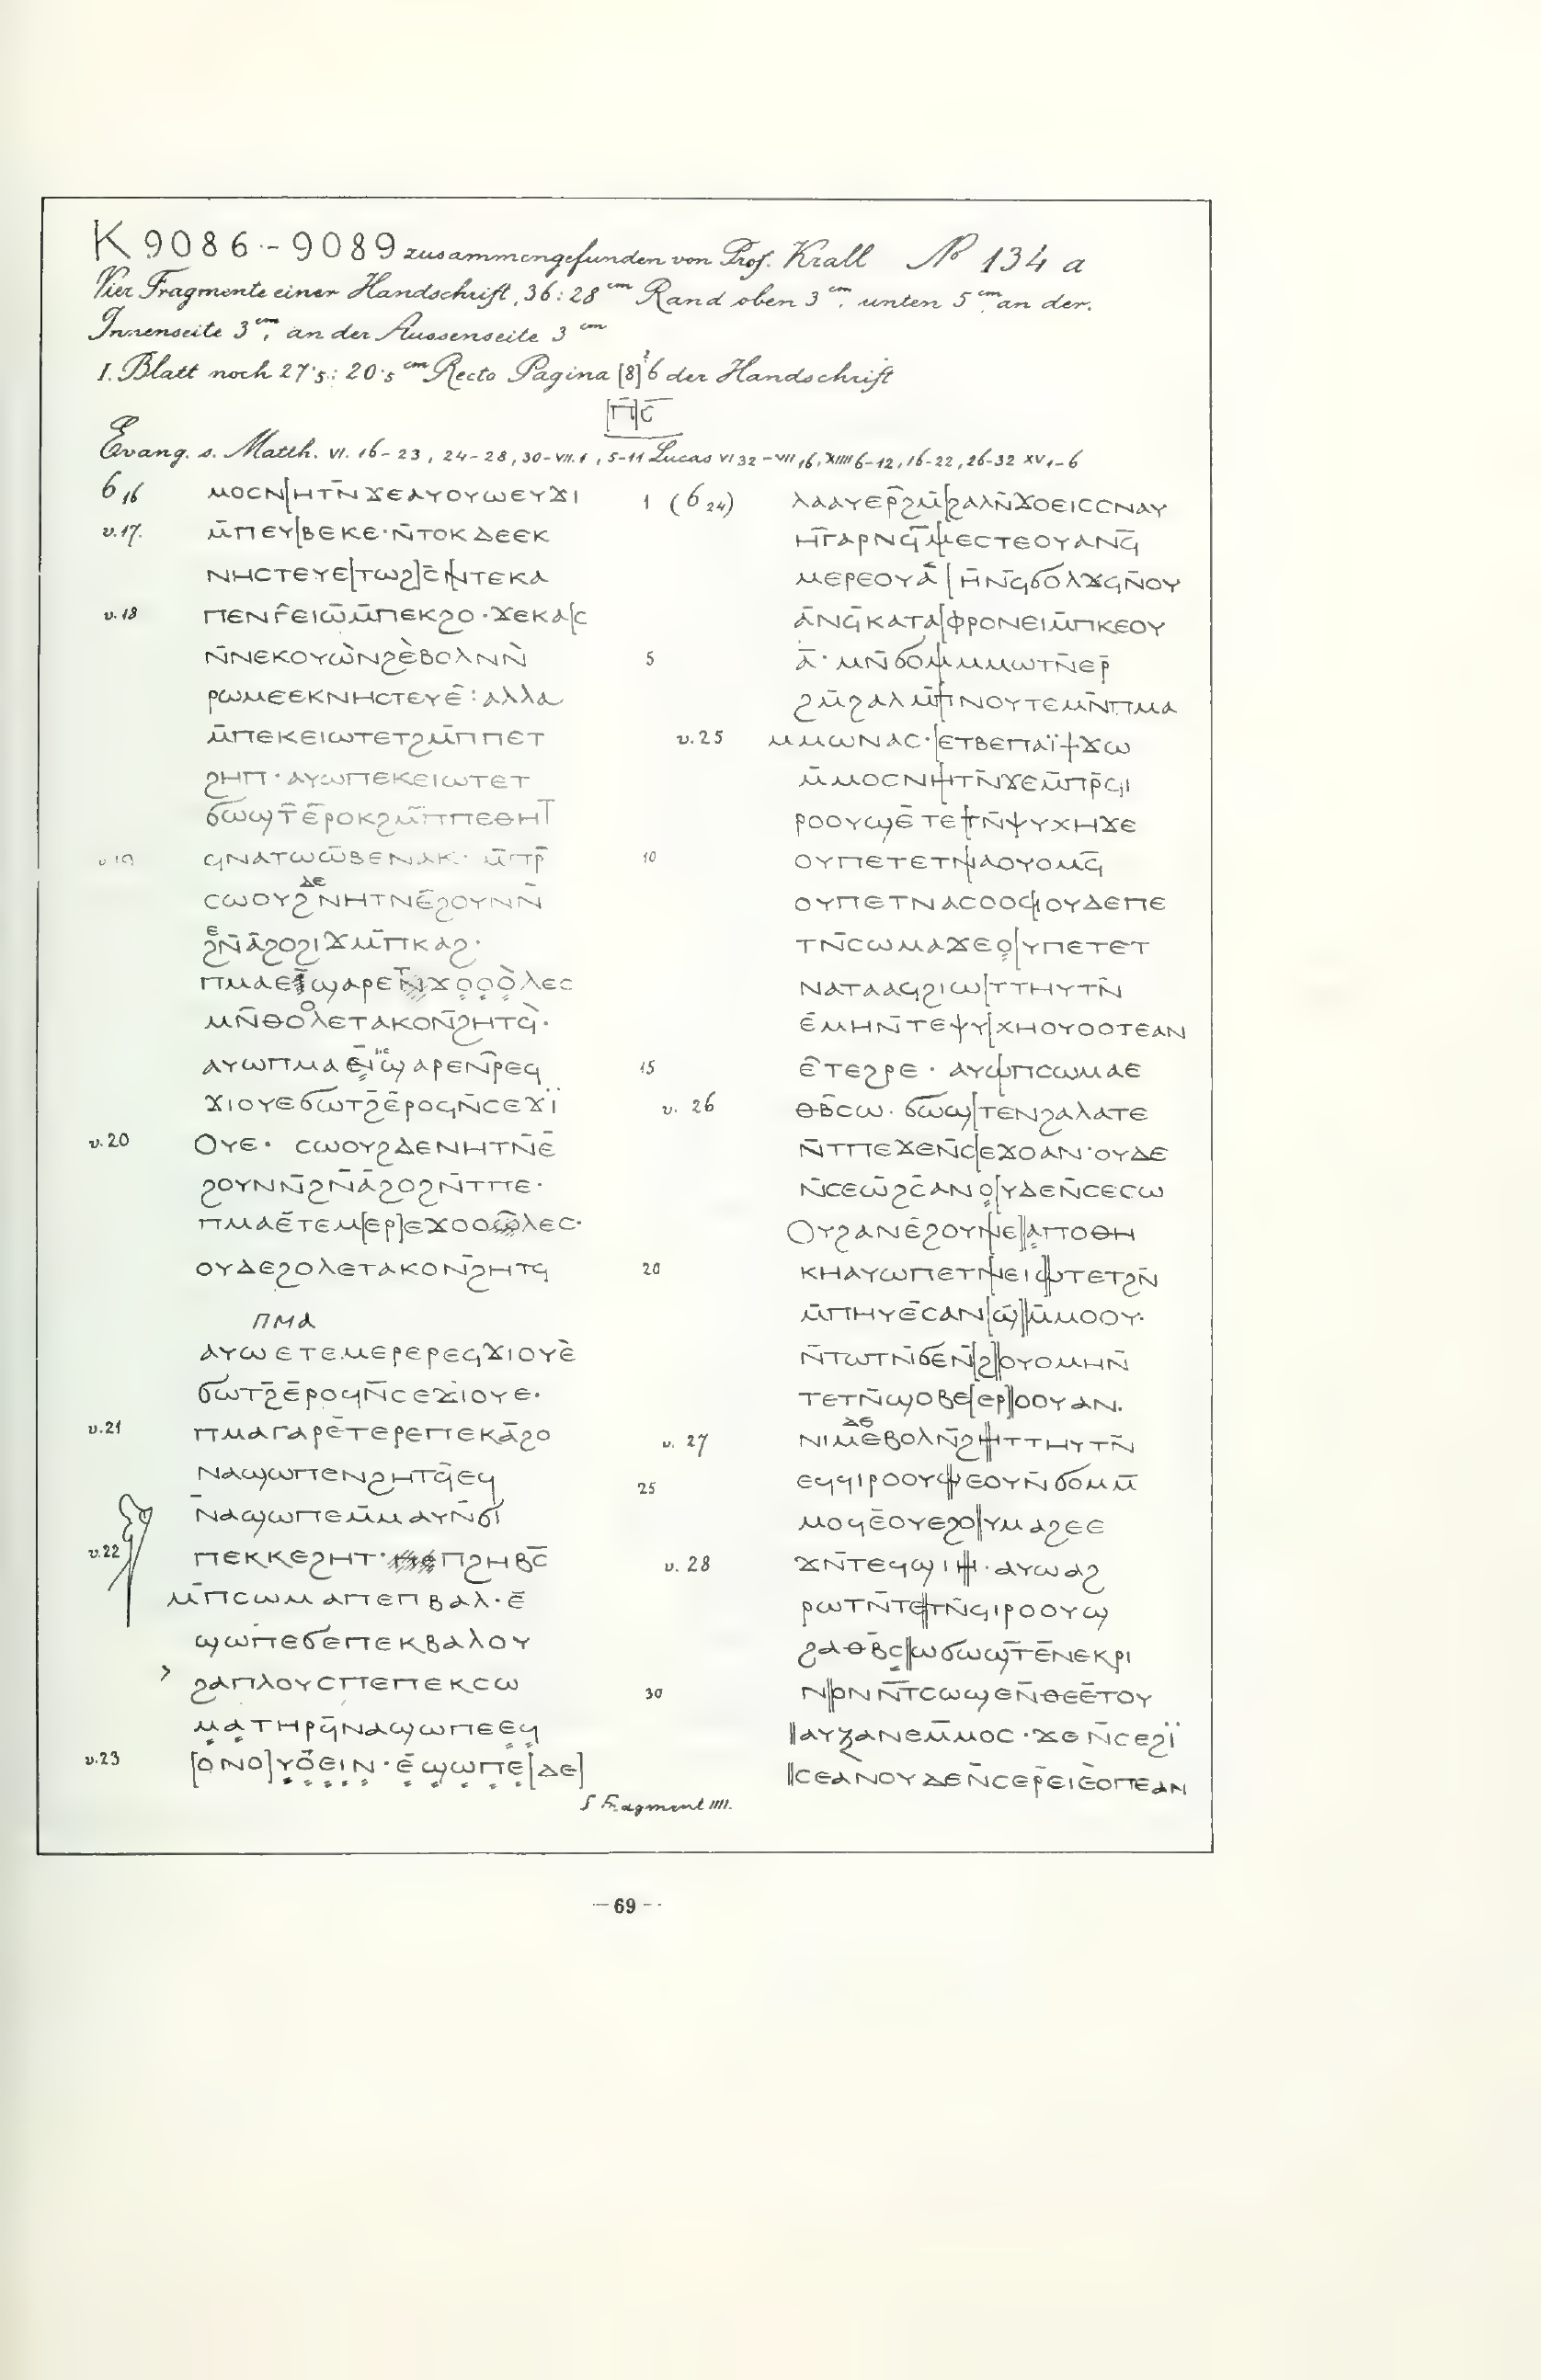 K 9086 - 9089 zusammengefunden von Prof. Krall No 134 a
Vier Fragmente einer Handschrift, 36:28 cm Rand oben 3 cm, unten 5 cm, an der
Innenseite 3 cm, an der Aussenseite 3 cm
I. Blatt noch 27·5 : 20·5 cm Recto Pagina [8]?6 der Handschrift
[Ⲡ̄]Ⲋ̄
Evang. s. Matth. VI. 16-23, 24-28, 30-VII.1, 5-11 Lucas VI 32-VII 16, XIIII 6-12, 16-22, 26-32 XV 1-6
6 16 ⲙⲟⲥⲛ[ⲏⲧⲛ̄ϫⲉⲁⲩⲟⲩⲱⲉⲩϫⲓ
v.17. ⲙ̄ⲡⲉⲩ[ⲃⲉⲕⲉ·ⲛ̄ⲧⲟⲕⲇⲉⲉⲕ
ⲛⲏⲥⲧⲉⲩⲉ[ⲧⲱϩ]ⲥ̄ⲛ̄ⲧⲉⲕⲁ
v.18 ⲡⲉⲛⲅ̄ⲉⲓⲱ̄ⲙ̄ⲡⲉⲕϩⲟ·ϫⲉⲕⲁ[ⲥ
ⲛ̄ⲛⲉⲕⲟⲩⲱ̀ⲛϩⲉ̀ⲃⲟⲗⲛⲛ̀
ⲣⲱⲙⲉⲉⲕⲛⲏⲥⲧⲉⲩⲉ̄:ⲁⲗⲗⲁ
ⲙ̄ⲡⲉⲕⲉⲓⲱⲧⲉⲧϩⲙ̄ⲡⲡⲉⲧ
ϩⲏⲡ·ⲁⲩⲱⲡⲉⲕⲉⲓⲱⲧⲉⲧ
ϭⲱϣⲧ̄ⲉ̄ⲣⲟⲕϩⲙ̄ⲡⲡⲉⲑⲏⲡ̄
v.19 ϥⲛⲁⲧⲱⲱ̄ⲃⲉⲛⲁⲕ· ⲙ̄ⲡⲣ̄
ⲇⲉ
ⲥⲱⲟⲩϩⲛⲏⲧⲛⲉ̄ϩⲟⲩⲛⲛ̀
ⲉ
ϩⲛ̄ⲁ̄ϩⲟϩⲓϫⲙ̄ⲡⲕⲁϩ·
ⲡⲙⲁⲉ ϣⲁⲣⲉ ϫⲟⲟⲟ̀ⲗⲉⲥ
ⲙⲛ̄ⲑⲟⲟⲗⲉⲧⲁⲕⲟⲛ̄ϩⲏⲧϥ̀·
ⲁⲩⲱⲡⲙⲁ ϣⲁⲣⲉⲛ̄ⲣⲉϥ
ϫⲓⲟⲩⲉϭⲱⲧϩ̄ⲉ̄ⲣⲟϥⲛ̄ⲥⲉϫⲓ̈
v.20 ⲟⲩⲉ· ⲥⲱⲟⲩϩⲇⲉⲛⲏⲧⲛ̄ⲉ̄
ϩⲟⲩⲛⲛ̄ϩⲛ̄ⲁ̄ϩⲟϩⲛ̄ⲧⲡⲉ·
ⲡⲙⲁⲉ̄ⲧⲉⲙ[ⲉⲣ]ⲉϫⲟⲟ ⲗⲉⲥ·
ⲟⲩⲇⲉϩⲟⲗⲉⲧⲁⲕⲟⲛ̄ϩⲏⲧϥ
ⲡⲙⲁ
ⲁⲩⲱⲉⲧⲉⲙⲉⲣⲉⲣⲉϥϫⲓⲟⲩⲉ̀
ϭⲱⲧϩ̄ⲉ̄ⲣⲟϥⲛ̄ⲥⲉϫⲓⲟⲩⲉ·
v.21 ⲡⲙⲁⲅⲁⲣⲉ̄ⲧⲉⲣⲉⲡⲉⲕⲁ̄ϩⲟ
ⲛⲁϣⲱⲡⲉⲛϩⲏⲧϥ̄ⲉϥ
ⲛ̄ⲁϣⲱⲡⲉⲙ̄ⲙⲁⲩⲛ̄ϭⲓ
v.22 ⲡⲉⲕⲕⲉϩⲏⲧ· ⲡϩⲏⲃⲥ̄
ⲙ̄ⲡⲥⲱⲙⲁⲡⲉⲡⲃⲁⲗ·ⲉ̄
ϣⲱⲡⲉϭⲉⲡⲉⲕⲃⲁⲗⲟⲩ
ϩⲁⲡⲗⲟⲩⲥⲡⲉⲡⲉⲕⲥⲱ
ⲙ̣ⲁ̣ⲧⲏⲣϥ̄ⲛⲁϣⲱⲡⲉⲉ̣ϥ̣
v.23 [ⲟⲛⲟ]ⲩ̣ⲟ̣ⲉ̣ⲓ̣ⲛ̣·ⲉ̣̄ϣ̣ⲱ̣ⲡ̣ⲉ̣[ⲇⲉ]
1 (6 24) ⲗⲁⲁⲩⲉⲣ̄ϩⲙ̄[ϩⲁⲗⲛ̄ϫⲟⲉⲓⲥⲥⲛⲁⲩ
ⲏ̄ⲅⲁⲣⲛϥ̄ⲙⲉⲥⲧⲉⲟⲩⲁⲛϥ̄
ⲙⲉⲣⲉⲟⲩⲁ̄[ⲏ̄ⲛϥ̄ϭⲟⲗϫϥⲛ̄ⲟⲩ
ⲁ̄ⲛϥ̄ⲕⲁⲧⲁ[ⲫⲣⲟⲛⲉⲓⲙ̄ⲡⲕⲉⲟⲩ
5 ⲁ̄·ⲙⲛ̄ϭⲟⲙⲙⲙⲱⲧⲛ̄ⲉⲣ̄
ϩⲙ̄ϩⲁⲗⲙ̄ⲡⲛⲟⲩⲧⲉⲙⲛ̄ⲡⲙⲁ
v.25 ⲙⲙⲱⲛⲁⲥ·[ⲉⲧⲃⲉⲡⲁⲓ̈ϯϫⲱ
ⲙ̄ⲙⲟⲥⲛⲏⲧⲛ̄ϫⲉⲙ̄ⲡⲣ̄ϥⲓ
ⲣⲟⲟⲩϣⲉ̄ⲧⲉⲧⲛ̄ⲯⲩⲭⲏϫⲉ
10 ⲟⲩⲡⲉⲧⲉⲧⲛⲁⲟⲩⲟⲙϥ̄
ⲟⲩⲡⲉⲧⲛⲁⲥⲟⲟϥⲟⲩⲇⲉⲡⲉ
ⲧⲛ̄ⲥⲱⲙⲁϫⲉⲟ̣[ⲩⲡⲉⲧⲉⲧ
ⲛⲁⲧⲁⲁϥϩⲓⲱ[ⲧⲧⲏⲩⲧⲛ̄
ⲉ̄ⲙⲏⲛ̄ⲧⲉⲯⲩ[ⲭⲏⲟⲩⲟⲟⲧⲉⲁⲛ
15 ⲉ̄ⲧⲉϩⲣⲉ·ⲁⲩⲱⲡⲥⲱⲙⲁⲉ
v. 26 ⲑⲃ̄ⲥⲱ·ϭⲱϣ[ⲧⲉⲛϩⲁⲗⲁⲧⲉ
ⲛ̄ⲧⲡⲉϫⲉⲛ̄ⲥ[ⲉϫⲟⲁⲛ·ⲟⲩⲇⲉ
ⲛ̄ⲥⲉⲱ̄ϩⲥ̄ⲁⲛⲟ̣[ⲩⲇⲉⲛ̄ⲥⲉⲥⲱ
ⲟⲩϩⲁⲛⲉ̄ϩⲟⲩⲛⲉ[ⲁ̣ⲡⲟⲑⲏ
20 ⲕⲏⲁⲩⲱⲡⲉⲧⲛ̄ⲉⲓⲱⲧⲉⲧϩⲛ̄
ⲙ̄ⲡⲏⲩⲉ̄ⲥⲁⲛ[ϣ̄]ⲙ̄ⲙⲟⲟⲩ·
ⲛ̄ⲧⲱⲧⲛ̄ϭⲉⲛ̄[ϩ]ⲟⲩⲟⲙⲏⲛ̄
ⲧⲉⲧⲛ̄ϣⲟⲃⲉ[ⲉⲣ]ⲟⲟⲩⲁⲛ.
ⲇⲉ
v. 27 ⲛⲓⲙⲉ̄ⲃⲟⲗⲛ̄ϩⲏⲧⲧⲏⲩⲧⲛ̄
25 ⲉϥϥⲓⲣⲟⲟⲩϣⲉⲟⲩⲛ̄ϭⲟⲙⲙ̄
ⲙⲟϥⲉ̄ⲟⲩⲉϩⲟ[ⲩⲙⲁϩⲉⲉ
v. 28 ϫⲛ̄ⲧⲉϥϣⲓⲏ·ⲁⲩⲱⲁϩ
ⲣⲱⲧⲛ̄ⲧⲉⲧⲛ̄ϥⲓⲣⲟⲟⲩϣ
ϩⲁⲑⲃ̄ⲥ̣ⲱϭⲱϣⲧ̄ⲉ̄ⲛⲉⲕⲣⲓ
30 ⲛⲟⲛⲛ̄ⲧⲥⲱϣⲉⲛ̄ⲑⲉⲉ̄ⲧⲟⲩ
‖ⲁⲩⲝⲁⲛⲉⲙ̄ⲙⲟⲥ·ϫⲉⲛ̄ⲥⲉϩⲓ̈
‖ⲥⲉⲁ̀ⲛⲟⲩⲇⲉⲛ̄ⲥⲉⲣ̄ⲉⲓⲉ̀ⲟⲡⲉⲁⲛ
Fragment IIII.
— 69 —